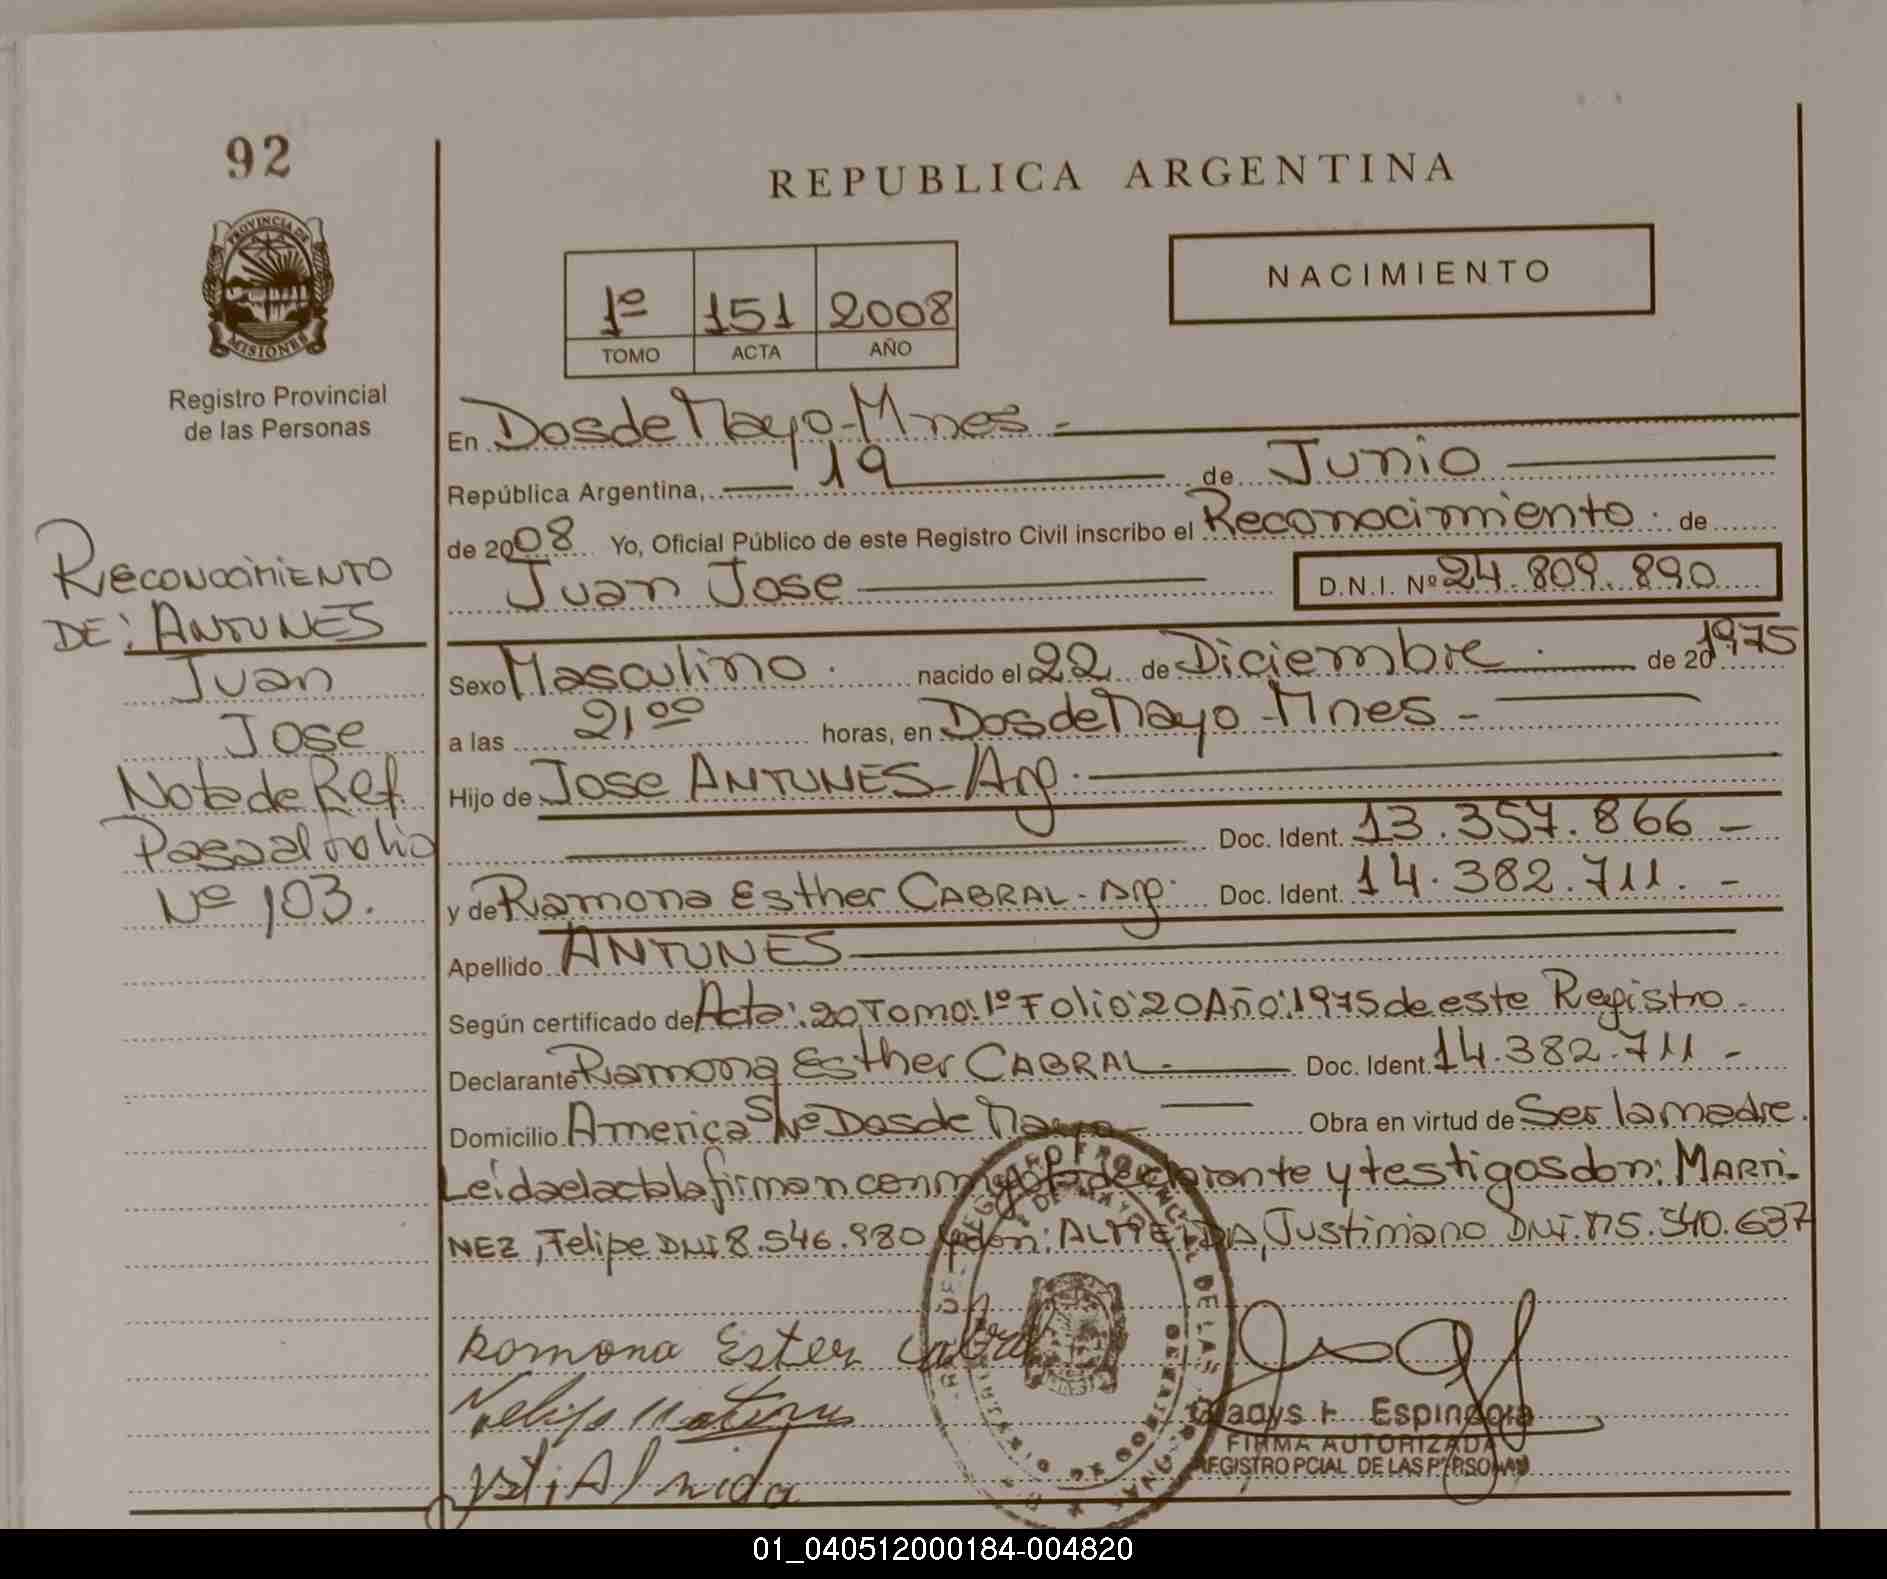 92
PROVINCIA DE
MISIONES
Registro Provincial
de las Personas
RECONOCIMIENTO
DE: ANTUNES
Juan
Jose
Nota de Ref.
Pasa al Folio
Nº 103.
REPUBLICA ARGENTINA
NACIMIENTO
1º 151 2008
TOMO ACTA AÑO
En Dos de Mayo - Mnes -
República Argentina, 19 de Junio
de 2008 Yo, Oficial Público de este Registro Civil inscribo el Reconocimiento. de
Juan Jose D.N.I. Nº 24.809.890
Sexo Masculino. nacido el 22 de Diciembre. de 20 1975
a las 21 00 horas, en Dos de Mayo - Mnes -
Hijo de Jose ANTUNES - Arg.
Doc. Ident. 13.357.866 -
y de Ramona Esther CABRAL - Arg. Doc. Ident. 14.382.711. -
Apellido ANTUNES
Según certificado de Acta: 20 Tomo: 1º Folio 20 Año: 1975 de este Registro -
Declarante Ramona Esther CABRAL - Doc. Ident. 14.382.711 -
Domicilio America S/Nº Dos de Mayo Obra en virtud de Ser la madre.
Leida el acta la firman conmigo la declarante y testigos don: MARTI-
NEZ, Felipe DNI 8.546.980 y don: ALMEIDA, Justiniano DNI. Nº5.540.637
Ramona Ester Cabral
Gladys Espindola
FIRMA AUTORIZADA
REGISTRO PCIAL DE LAS PERSONAS
01_040512000184-004820